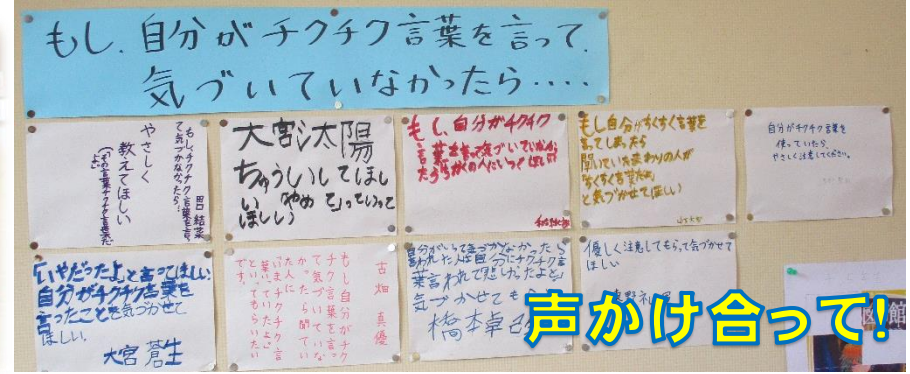 もし、自分がチクチク言葉を言って、
気づいていなかったら‥‥‥
もし、チクチク言葉を言っ
て気づかなかったら…
やさしく
教えてほしい
田口 結菜
大宮 太陽
ちゅういしてほし
い 「やめて」っていって
ほしい
もし、自分がチクチク
言葉を言って気づいていなかっ
もし自分がちくちく言葉を
言ってしまったら
聞いていたまわりの人が
ちくちく言葉だよ
と気づかせてほしい
自分がチクチク言葉を
使っていたら、
やさしく注意してください。
「いやだったよ」と言ってほしい。
自分がチクチク言葉を
言ったことを気づかせて
ほしい。
大宮 蒼生
古畑 真優
もし自分がチク
チク言葉を言っ
て気づいていな
かったら聞いてい
た人に
「いまチクチク言
葉いってたよ」
といってもらいたい
です。
自分がいって気づかなかったら
言われた人は自分にチクチク言
葉言われて悲しかったよと
気づかせても
橋本卓
優しく注意してもらって気づかせて
ほしい
声かけ合って!
館